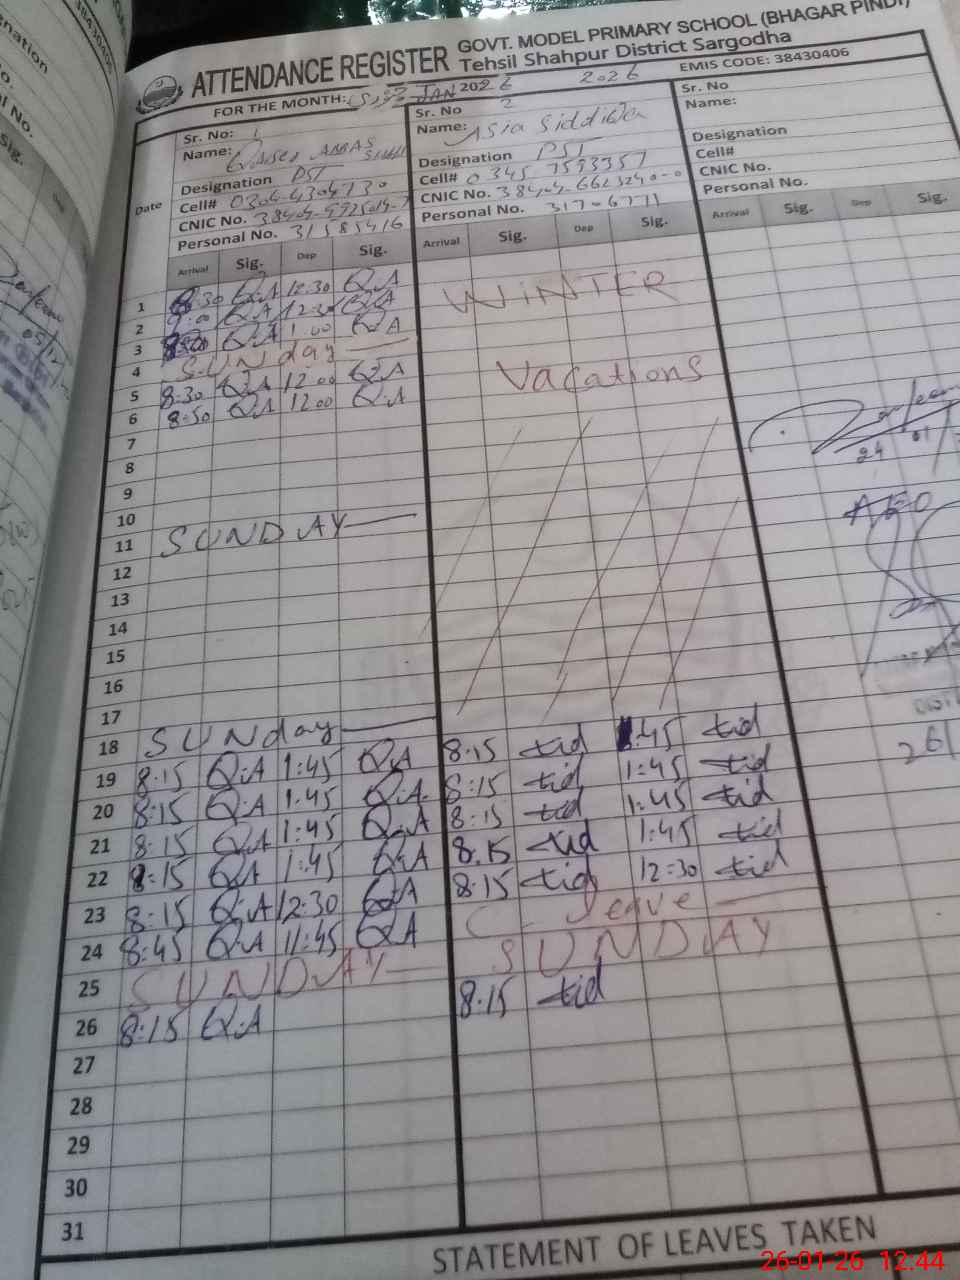 ATTENDANCE REGISTER
GOVT. MODEL PRIMARY SCHOOL (BHAGAR PINDI)
Tehsil Shahpur District Sargodha
FOR THE MONTH: JAN 2026
2026
EMIS CODE: 38430406
Date
Sr. No: 1
Name: ABBAS
Designation PST
Cell# 0304-4304730
CNIC No.
Personal No. 31585416
Arrival Sig. Dep Sig.
Sr. No 2
Name: Asia Siddiqa
Designation PST
Cell# 0345 7593357
CNIC No. 38404-6623240-0
Personal No. 31706771
Arrival Sig. Dep Sig.
Sr. No
Name:
Designation
Cell#
CNIC No.
Personal No.
Arrival Sig. Dep Sig.
1 8:30 Q.A 12:30 Q.A
2 9:00 Q.A 12:30 Q.A
3 Q.A 1:00 Q.A
4 SUNday
5 8:30 Q.A 12:00 Q.A
6 8:50 Q.A 12:00 Q.A
WiNTER
Vacations
7
8
9
10
11 SUNDAY
12
13
14
15
16
17
18 SUNday
19 8:15 Q.A 1:45 Q.A 8:15 1:45
20 8:15 Q.A 1:45 Q.A. 8:15 1:45
21 8:15 Q.A 1:45 Q.A 8:15 1:45
22 8:15 Q.A 1:45 Q.A 8:15 1:45
23 8:15 Q.A 12:30 Q.A 8:15 12:30
24 8:45 Q.A 11:45 Q.A C. leave
25 SUNDAY SUNDAY
26 8:15 Q.A 8:15
27
28
29
30
31
24 01
AEO
26
STATEMENT OF LEAVES TAKEN
26-01-26 12:44